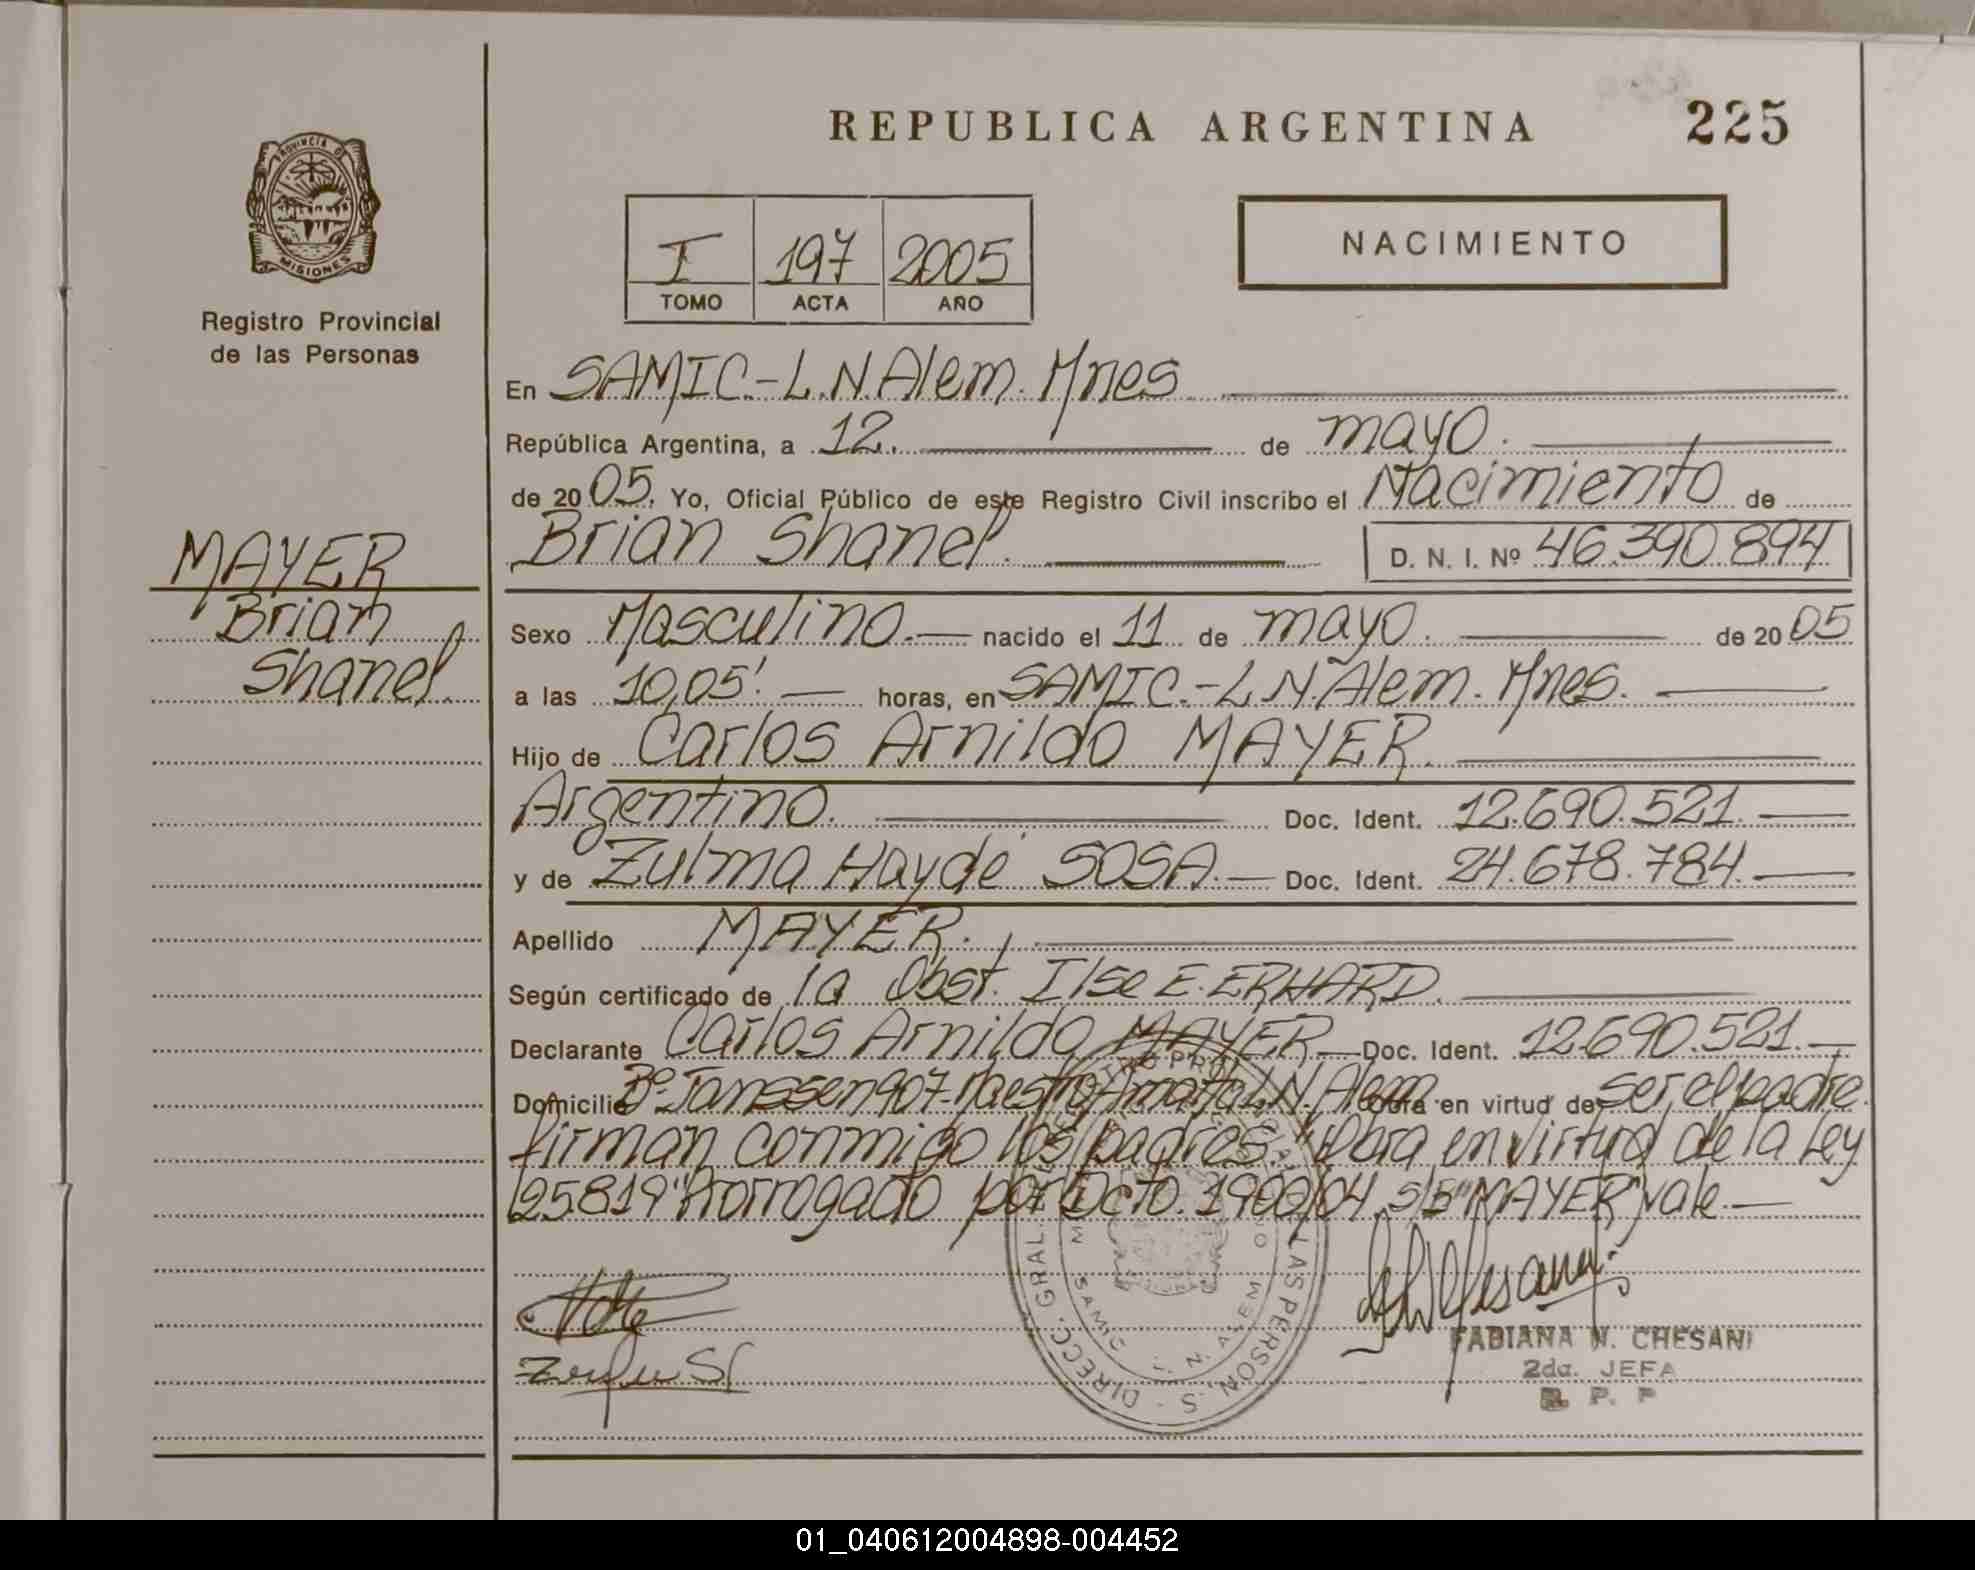 REPUBLICA ARGENTINA 225
PROVINCIA DE
MISIONES
Registro Provincial
de las Personas
I 197 2005
TOMO ACTA AÑO
NACIMIENTO
En SAMIC.-L.N.Alem. Mnes
República Argentina, a 12. de mayo.
de 2005. Yo, Oficial Público de este Registro Civil inscribo el Nacimiento de
Brian Shanel. D. N. I. Nº 46.390.894
MAYER
Brian
Shanel.
Sexo Masculino.— nacido el 11 de mayo. de 2005
a las 10,05'. — horas, en SAMIC.-L.N.Alem. Mnes.
Hijo de Carlos Arnildo MAYER.
Argentino. Doc. Ident. 12.690.521.
y de Zulma Haydé SOSA.— Doc. Ident. 24.678.784.
Apellido MAYER.
Según certificado de la Obst. Ilse E. ERHARD.
Declarante Carlos Arnildo MAYER— Doc. Ident. 12.690.521.—
Domicilio Bº Janssen 907- Maestro Amarfa L.N. Alem Obra en virtud de ser el padre.
firman conmigo los padres. "Obra en virtud de la Ley
25819" Prorrogado por Dcto. 1900/04. S/B "MAYER" vale.—
DIRECC. GRAL. LAS PERSON.
SAMIC L. N. ALEM
FABIANA N. CHESANI
2da. JEFA
R. P. P
01_040612004898-004452